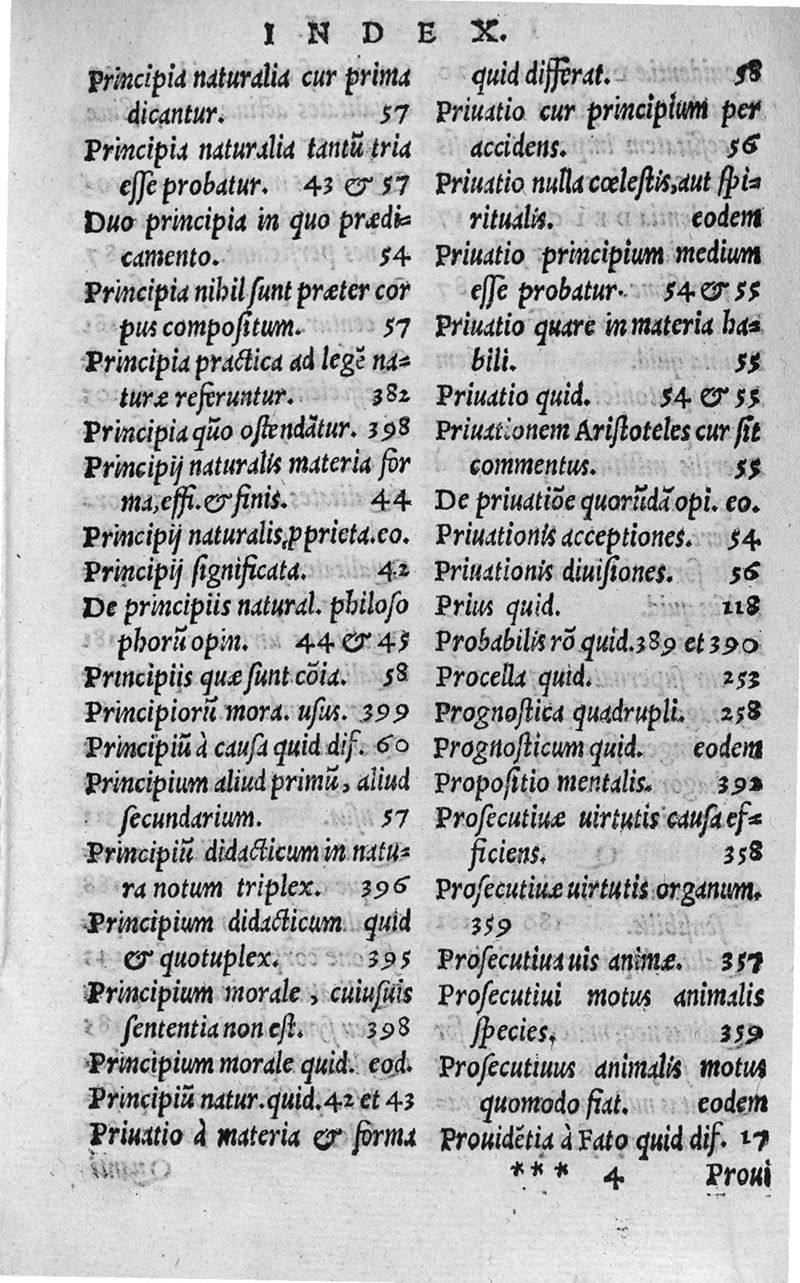 INDEX.
Principia naturalia cur prima
dicantur. 57
Principia naturalia tantū tria
esse probatur. 43 & 57
Duo principia in quo prædi-
camento. 54
Principia nihil sunt præter cor
pus compositum. 57
Principia practica ad legē na-
turæ referuntur. 382
Principia quō ostendātur. 398
Principij naturalis materia for
ma, effi. & finis. 44
Principij naturalis ꝓprieta. eo.
Principij significata. 42
De principiis natural. philoso
phorū opin. 44 & 45
Principiis quæ sunt cōia. 58
Principiorū mora. usus. 399
Principiū à causa quid dif. 60
Principium aliud primū, aliud
secundarium. 57
Principiū didacticum in natu-
ra notum triplex. 396
Principium didacticum quid
& quotuplex. 395
Principium morale, cuiusuis
sententia non est. 398
Principium morale quid. eod.
Principiū natur. quid. 42 et 43
Priuatio à materia & forma
quid differat. 58
Priuatio cur principium per
accidens. 56
Priuatio nulla cœlestis, aut spi-
ritualis. eodem
Priuatio principium medium
esse probatur. 54 & 55
Priuatio quare in materia ha-
bili. 55
Priuatio quid. 54 & 55
Priuationem Aristoteles cur sit
commentus. 55
De priuatiōe quorūdā opi. eo.
Priuationis acceptiones. 54
Priuationis diuisiones. 56
Prius quid. 118
Probabilis rō quid. 389 et 390
Procella quid. 253
Prognostica quadrupli. 258
Prognosticum quid. eodem
Propositio mentalis. 392
Prosecutiuæ uirtutis causa ef-
ficiens. 358
Prosecutiuæ uirtutis organum.
359
Prosecutiua uis animæ. 357
Prosecutiui motus animalis
species. 359
Prosecutiuus animalis motus
quomodo fiat. eodem
Prouidētia à Fato quid dif. 17
*** 4 Proui